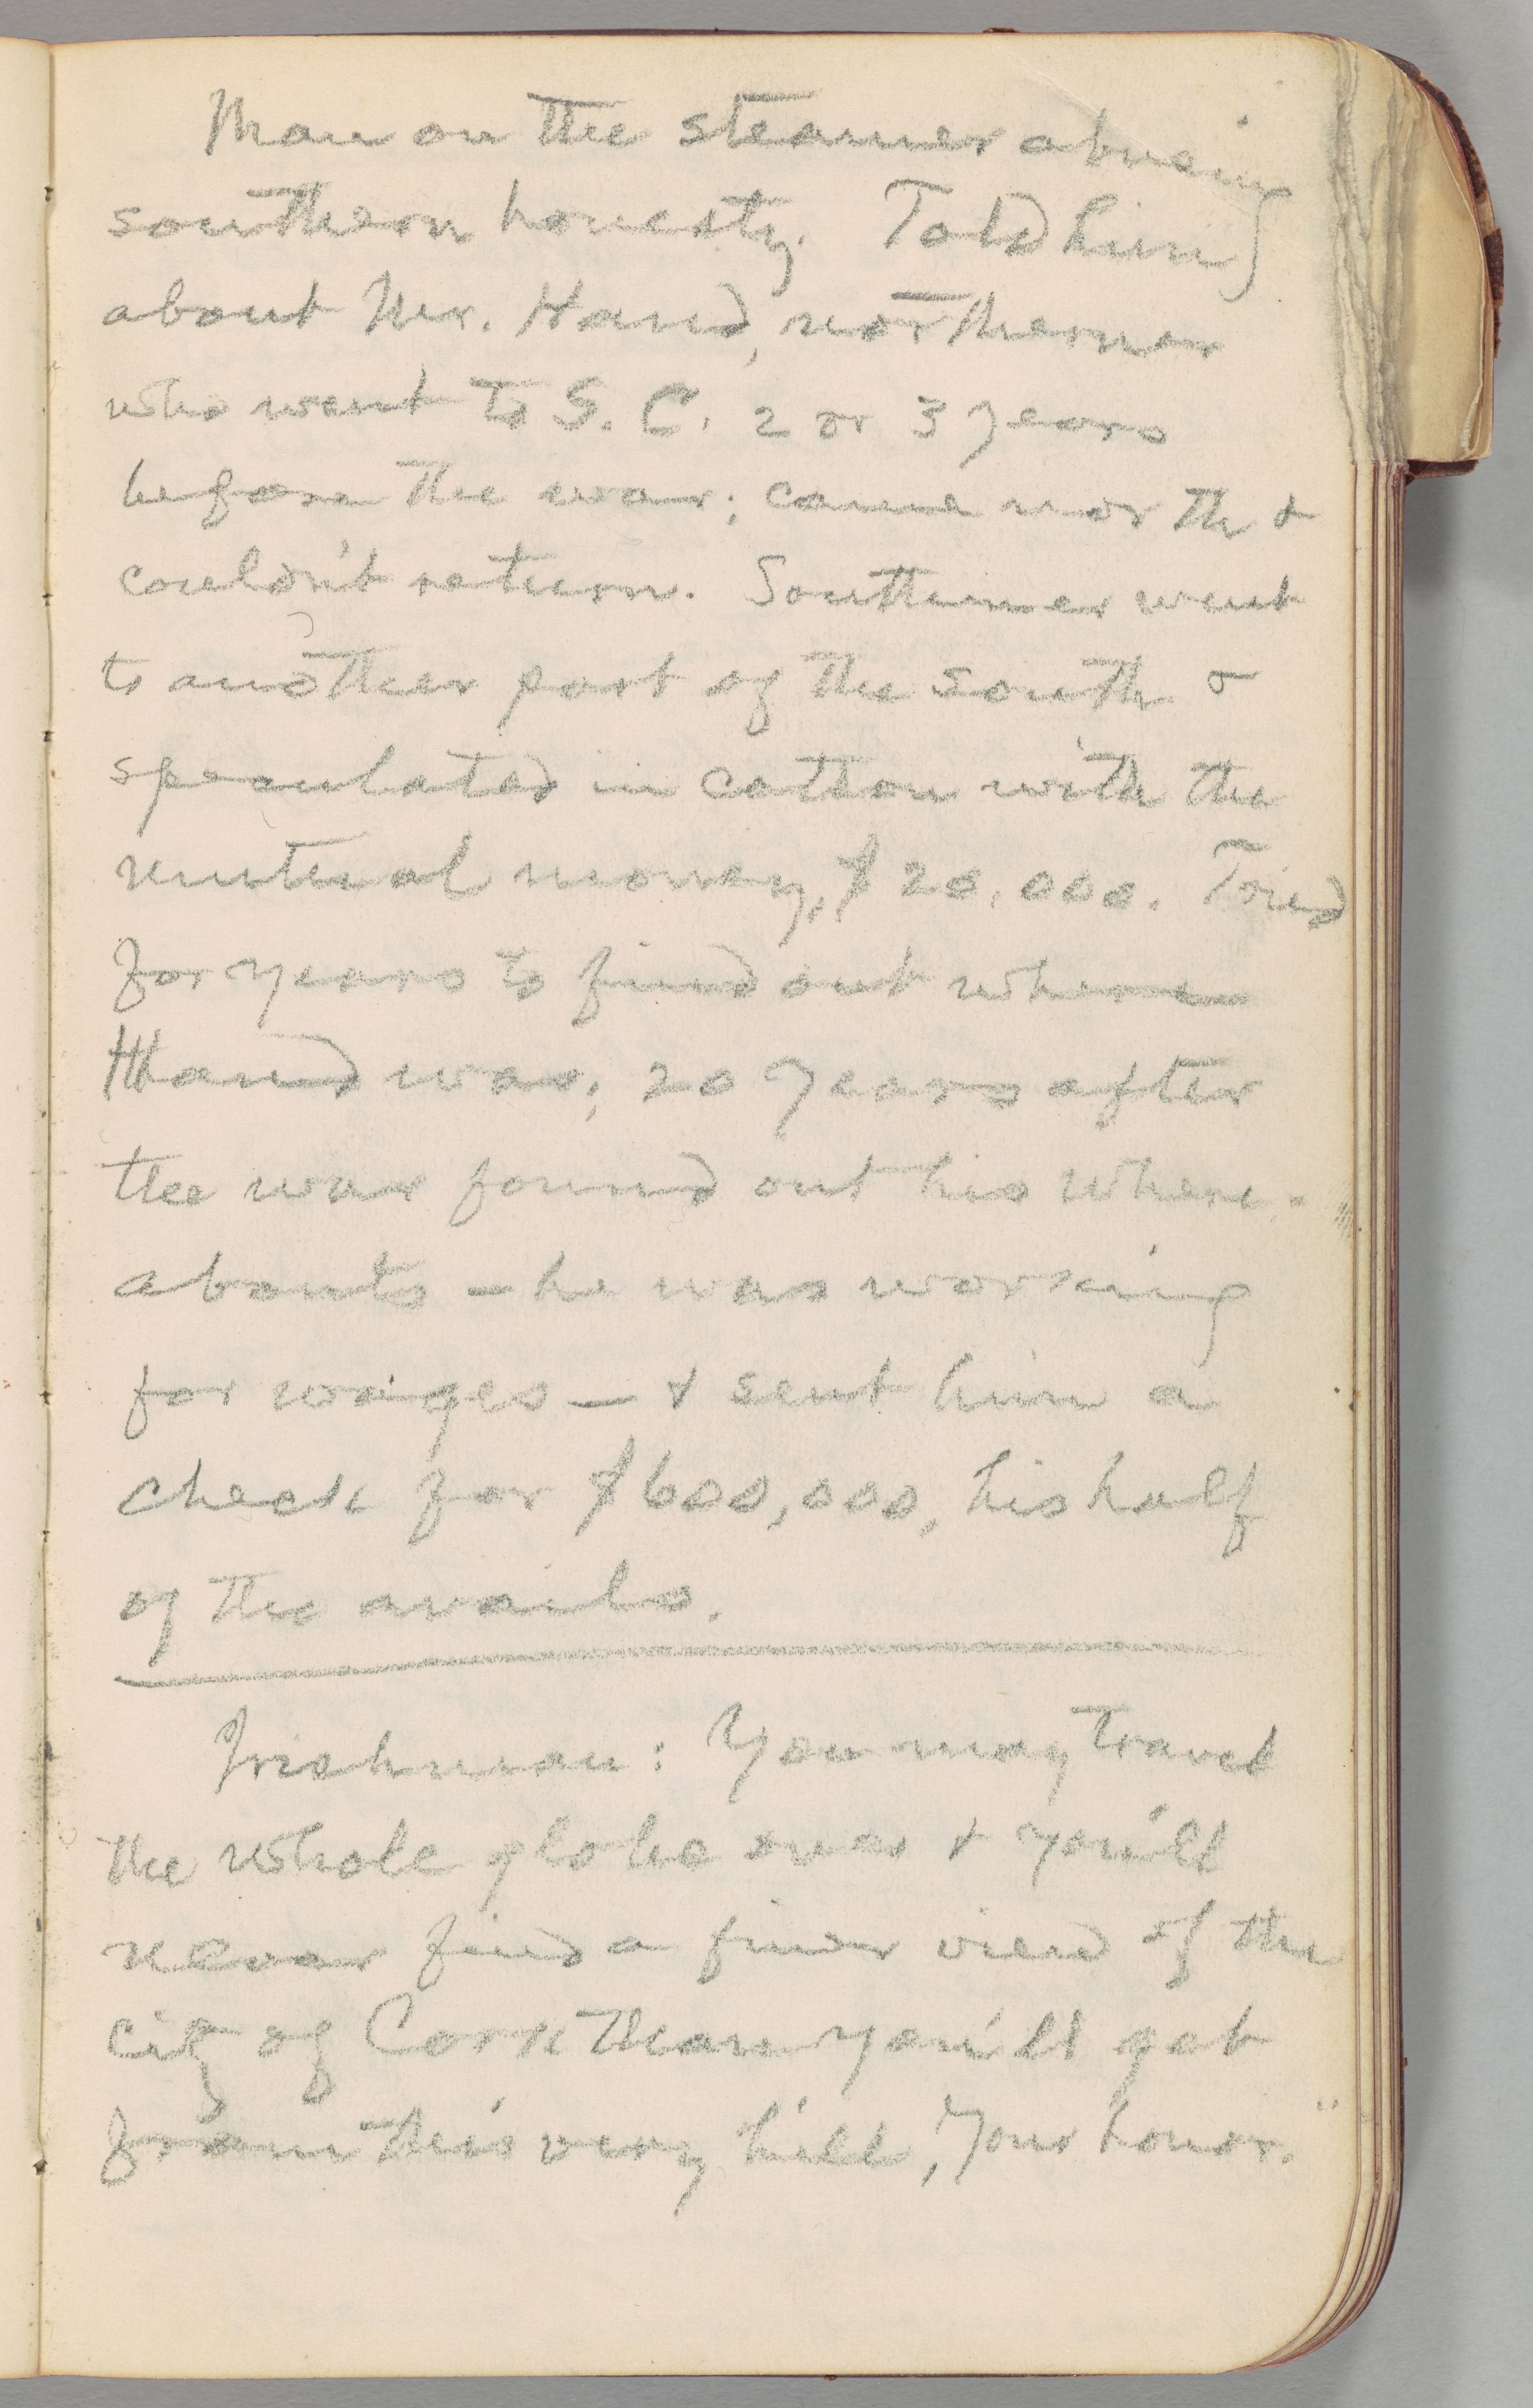 Man on the steamer abusing
southern honesty. Told him
about Mr. Hand, northerner
who went to S. C. 2 or 3 years
before the war; came north &
couldn't return. Southerner went
to another part of the south &
speculated in cotton with the
mutual money, $20,000. Tried
for years to find out where
Hand was; 20 years after
the war found out his where-
abouts — he was working
for wages — & sent him a
check for $600,000, his half
of the avails.
Irishman: You may travel
the whole globe over & you'll
never find a finer view of the
city of Cork than you'll get
from this very hill, Your honor."